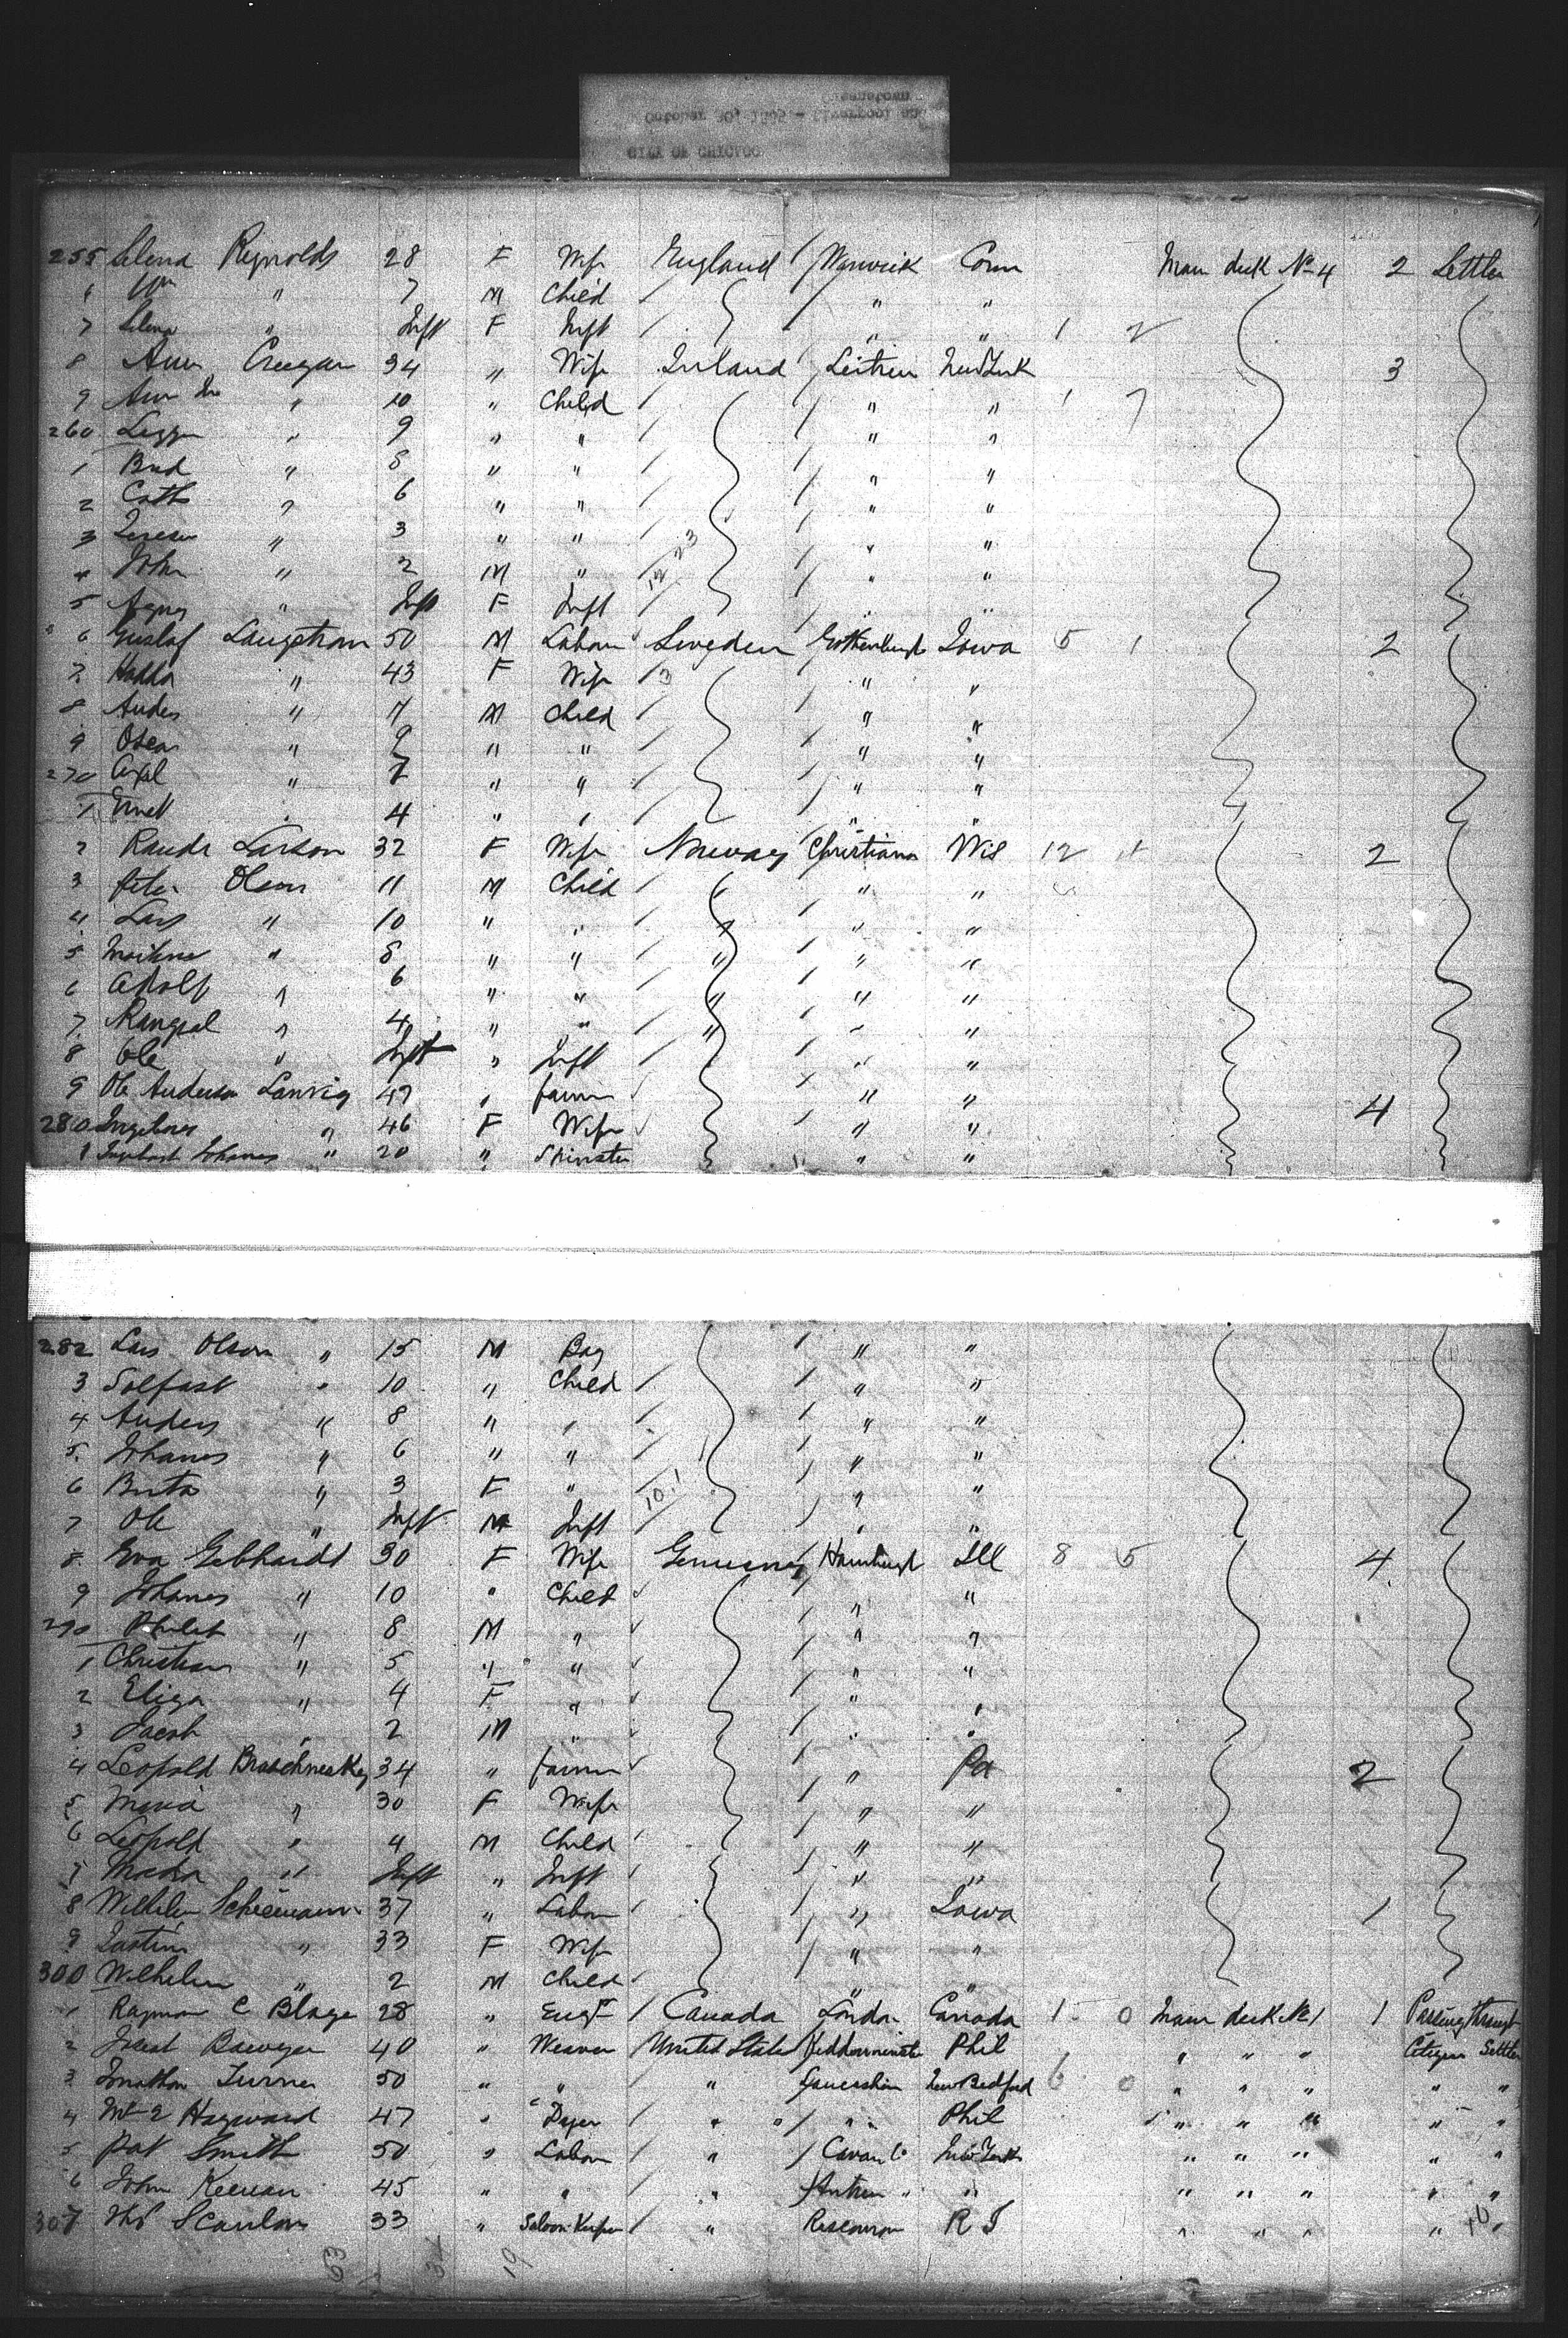 CITY OF CHICAGO
October 30, 1885 - Liverpool and
Queenstown
255 Selena Reynolds 28 F Wife England Warwick Conn Main deck No 4 2 Settler
6 Wm " 7 M Child " "
7 Selena " Inft F Inft " " 1 2
8 Ann Creegan 34 " Wife Ireland Leitrim New York 3
9 Ann " 10 " Child " " 1 7
260 Lizzie " 9 " " " "
1 Brid " 8 " " " "
2 Cath " 6 " " " "
3 Teresa " 3 " " " "
4 John " 2 M " " "
5 Agnes " Inft F Inft " "
6 Gustaf Langstrom 50 M Labour Sweden Gothenburg Iowa 5 1 2
7 Hedda " 43 F Wife " "
8 Andes " 11 M Child " "
9 Oscar " 9 " " " "
270 Axel " 7 " " " "
1 Ernst " 4 " " " "
2 Larson 32 F Wife Norway Christiana Wis 12 2
3 Peter Olson 11 M Child " "
4 Lars " 10 " " " "
5 " 8 " " " " "
6 Adolf " 6 " " " " "
7 " 4 " " " " "
8 Ole " Inft " Inft " "
9 Ole Anderson 47 " farmer " " 4
280 " 46 F Wife " "
1 Johannes " 20 " Spinster " "
282 Lars Olson " 15 M Boy " "
3 Solfast " 10 " Child " "
4 Anders " 8 " " " "
5 Johannes " 6 " " " "
6 Brita " 3 F " " "
7 Ole " Inft M Inft " "
8 Eva Gebhardt 30 F Wife Germany Hamburgh Ill 8 5 4
9 Johanes " 10 " Child " "
290 " 8 M " " "
1 Christian " 5 " " " "
2 Eliza " 4 F " " "
3 Jacob " 2 M " " "
4 Leopold 34 " farmer " Pa 2
5 " 30 F Wife " "
6 Leopold " 4 M Child " "
7 " Inft " Inft " "
8 Wilhelm 37 " Labour " Iowa 1
9 " 33 F Wife " "
300 Wilhelm " 2 M Child " "
1 C Blage 28 " Canada London Canada 1 0 Main deck No 1 1 Passing through
2 40 " Weaver United States Kidderminster Phil " " " Citizen Settler
3 Jonathan Turner 50 " " " Lancashire New Bedford 6 0 " " " " "
4 Hayward 47 " Dyer " " " " Phil " " " " "
5 Pat Smith 50 " Labour " Cavan Co New York " " " " "
6 John Keenan 45 " " " Antrim " " " " " " "
307 Thos Scanlon 33 " Saloon Keeper " Roscommon R I " " " " "